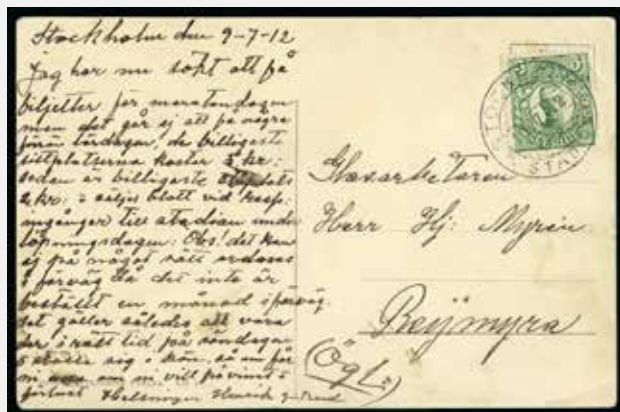 Stockholm den 9-7-12
Jag har nu sökt att få
biljetter för maratondagen
men det går ej att få några
förän lördagen, de billigaste
sittplatserna kostar 5 kr:
sedan är billigaste
2 kr: säljes blott vid
ingånger till stadion under
löpningsdagen: Obs! det kan
ej på något sätt ordnas
i förväg då det inte är
beställt en månad i förväg.
det gäller således att vara
der i rätt tid på söndagen
o ställa sig i kön, så om för
ni om ni vill
förlust Helsningar Henrik
Glasarbetaren
Herr Hj: Myrén
Reijmyra
(Ögl:)